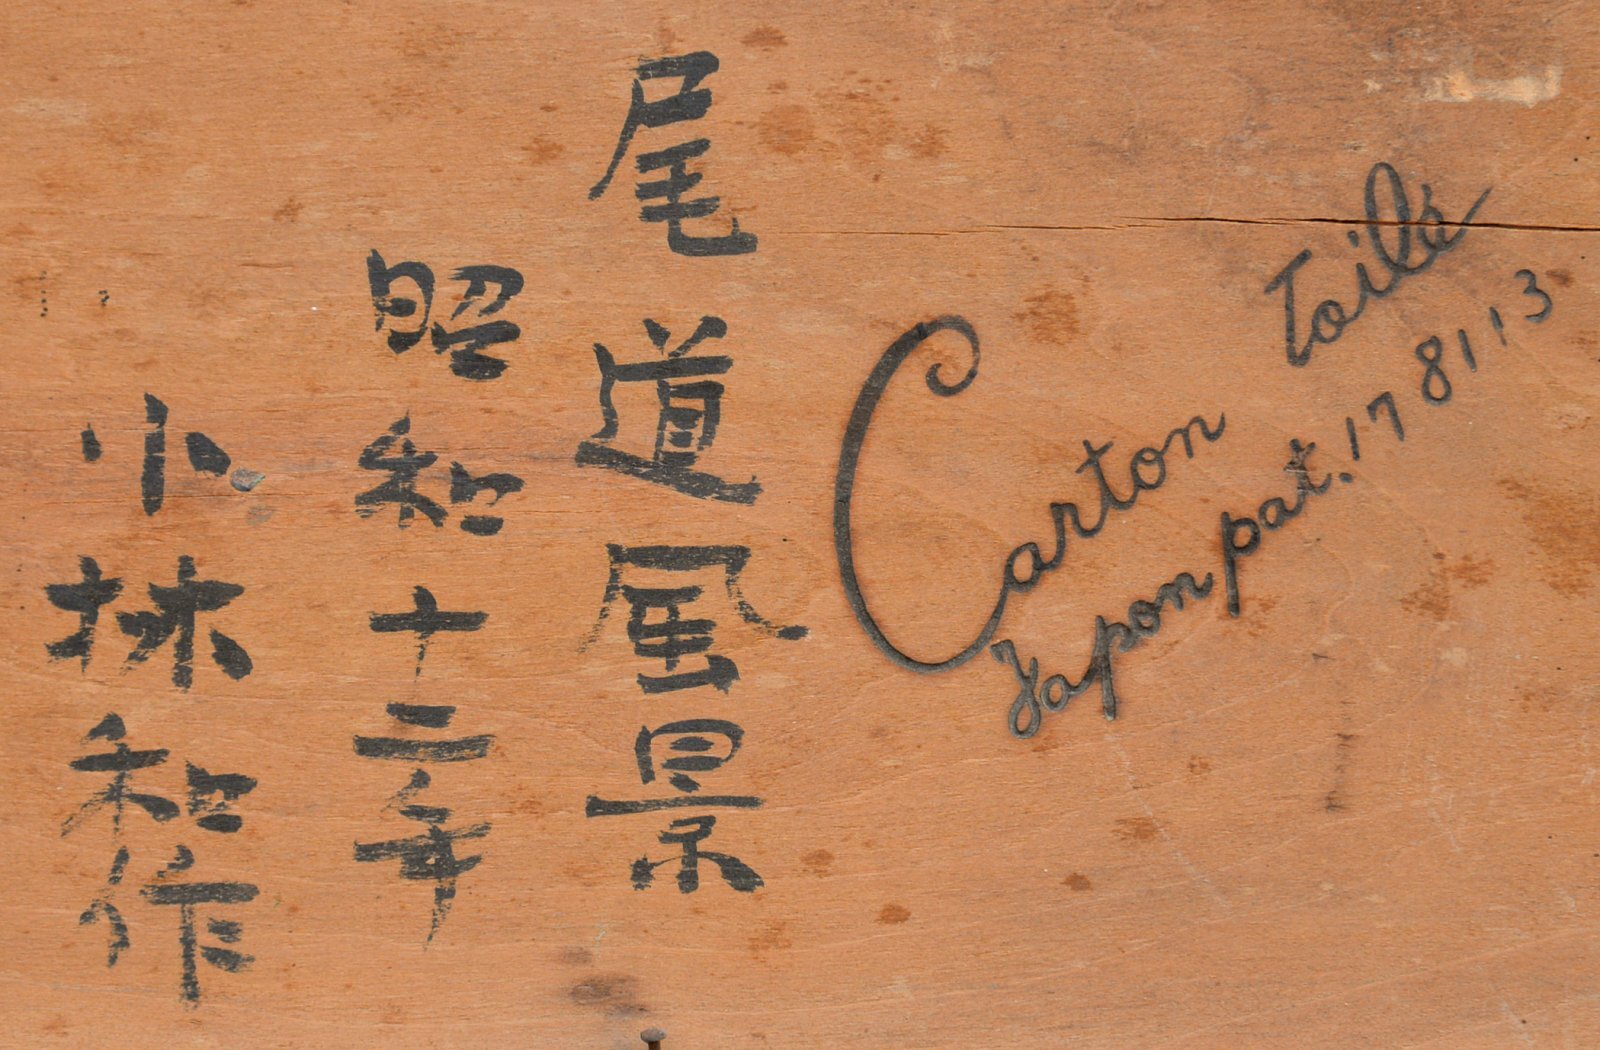 尾道風景
昭和十二年
小林和作
Carton Toilé
Japon pat. 178113